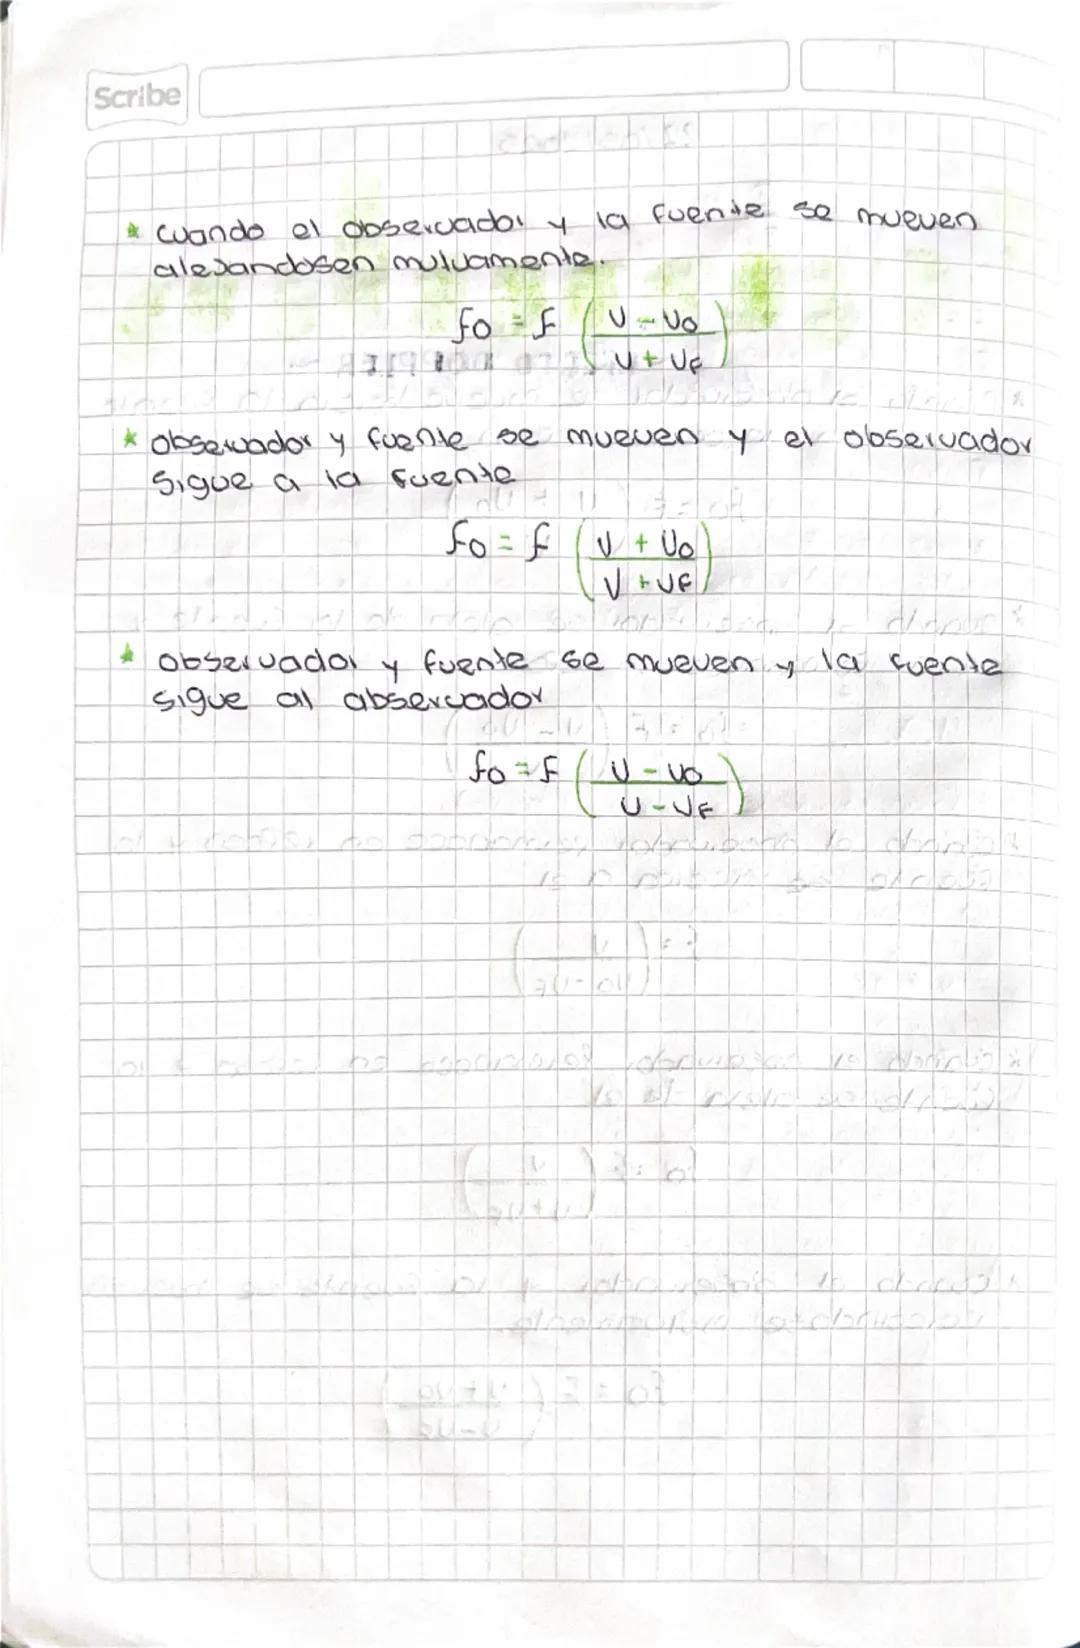 Scribe
* cuando el observador y la fuente se mueven
alejandosen mutuamente.
fo = f (v - vo / v + vF)
* observador y fuente se mueven y el observador
sigue a la fuente
fo = f (v + vo / v + vF)
* observador y fuente se mueven y la fuente
sigue al abservador
fo = f (v - vo / v - vF)